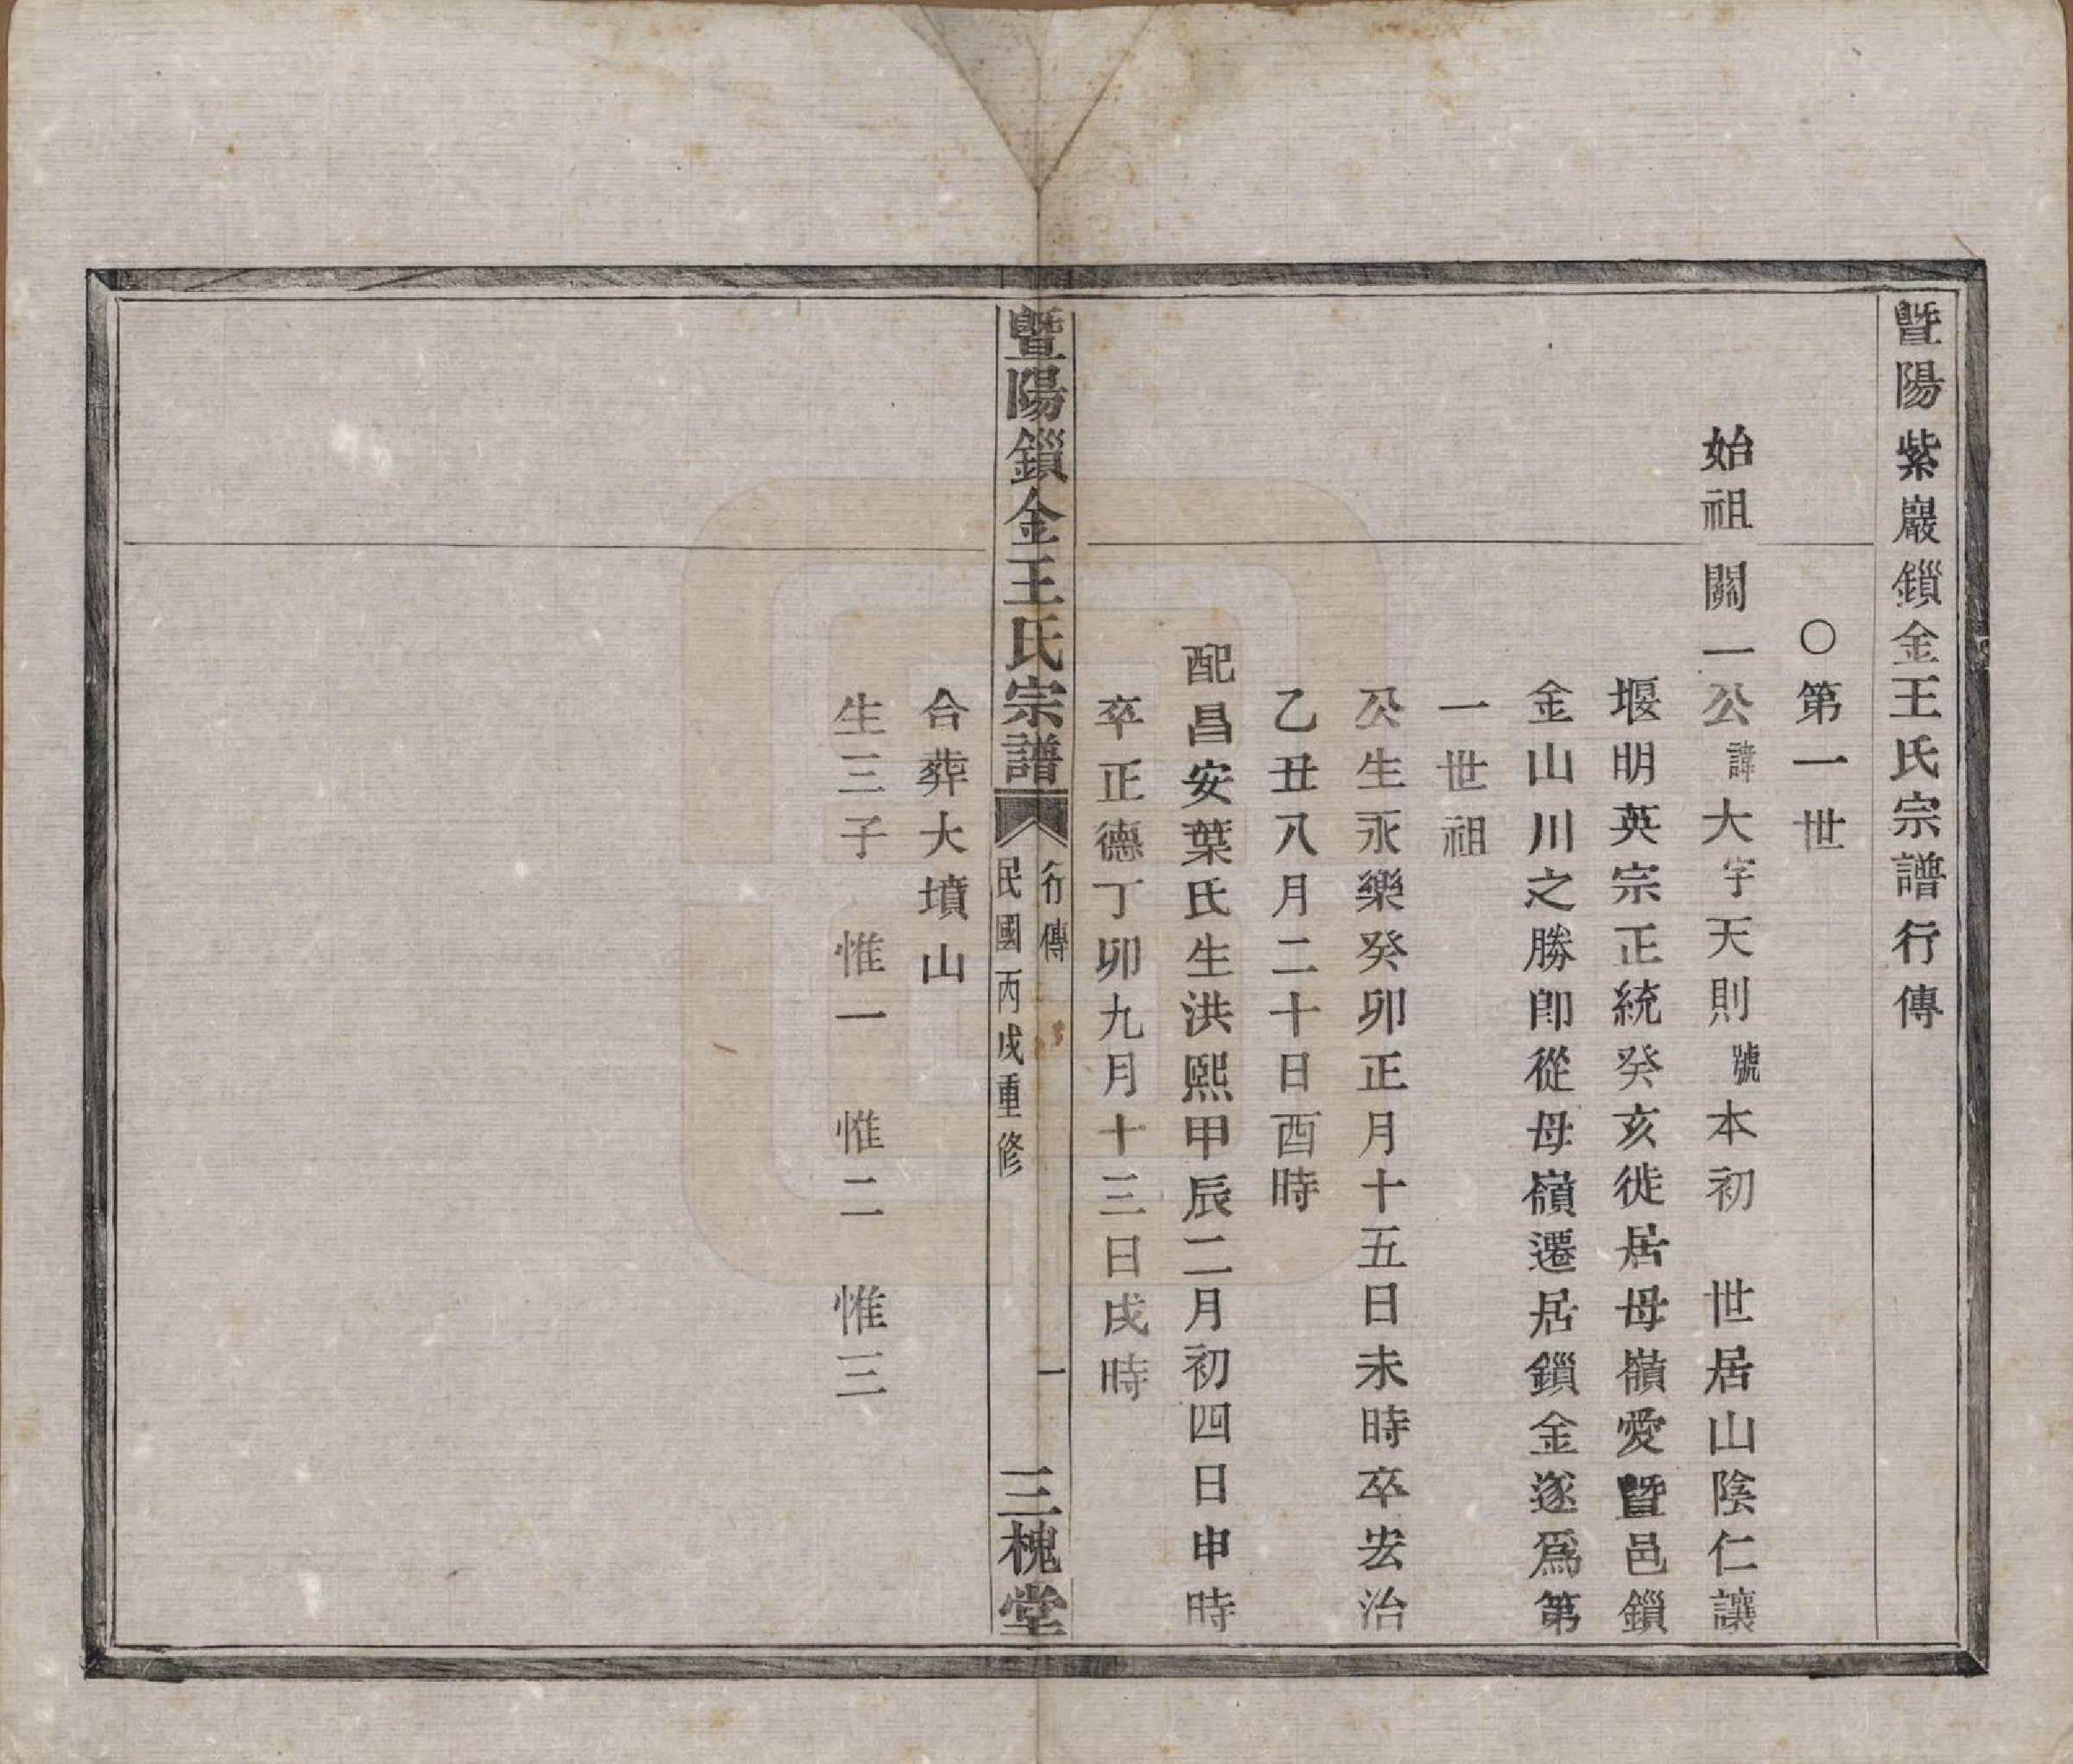 暨陽紫巖鎻金王氏宗譜行傳
〇第一世
始祖關一公諱大字天則號本初 世居山陰仁讓
堰明英宗正統癸亥徙居母嶺愛暨邑鎻
金山川之勝卽從母嶺遷居鎻金遂爲第
一世祖
公生永樂癸卯正月十五日未時卒宏治
乙丑八月二十日酉時
配昌安葉氏生洪熙甲辰二月初四日申時
卒正德丁卯九月十三日戌時
暨陽鎻金王氏宗譜
行傳
一
民國丙戌重修
三槐堂
合葬大墳山
生三子 惟一 惟二 惟三